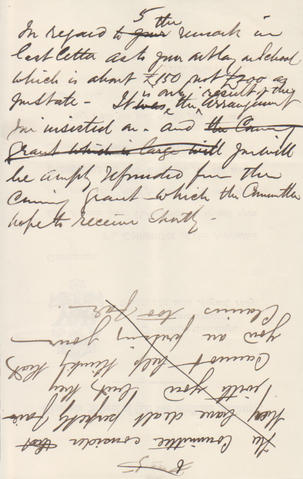 5
In regard to your the remark in
last letter as to your outlay on School
which is about £150 not £200 as
you state - It was is only the result of the arrangement
you insisted on - and the Coming
Grant which is large will you will
be amply refunded from the
coming grant which the Committee
hope to receive shortly -
6
The Committee consider that
they have dealt perfectly fairly
with you but they
cannot help thinking that
you are pushing your
Claims too far -